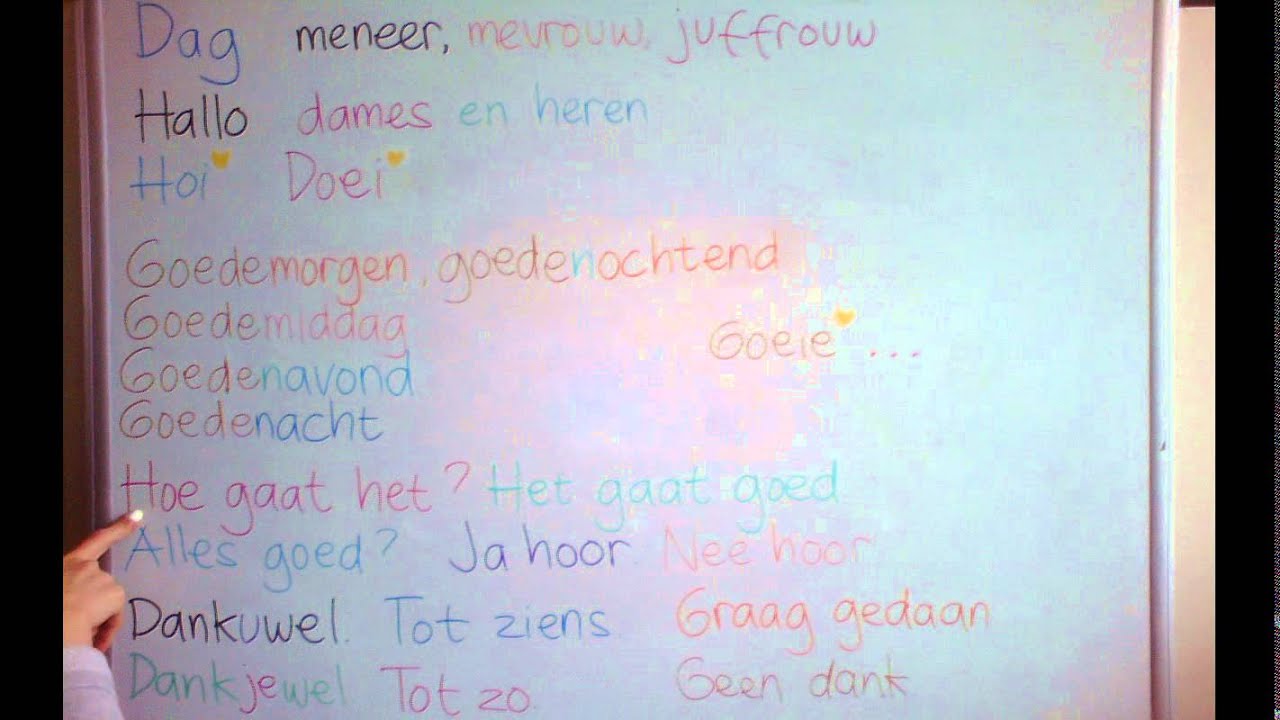 Dag meneer, mevrouw, juffrouw
Hallo dames en heren
Hoi Doei
Goedemorgen, goedenochtend
Goedemiddag
Goeie ...
Goedenavond
Goedenacht
Hoe gaat het? Het gaat goed
Alles goed? Ja hoor. Nee hoor
Dankuwel. Tot ziens. Graag gedaan
Dankjewel Tot zo. Geen dank